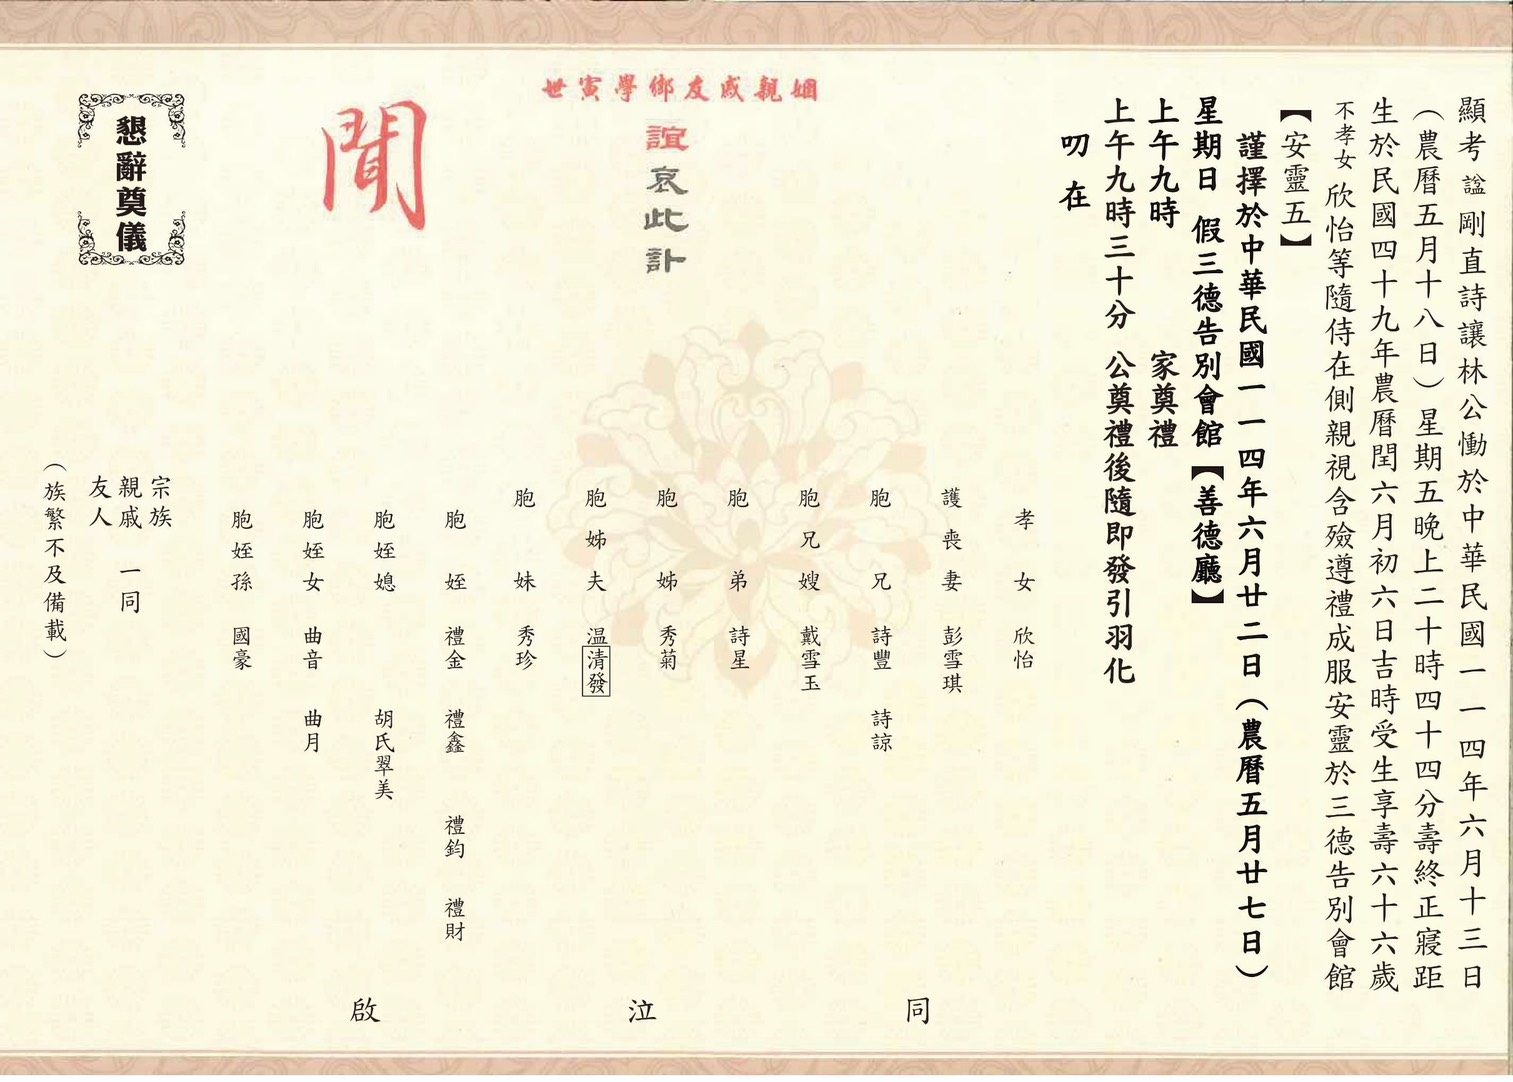 顯考諡剛直詩讓林公慟於中華民國一一四年六月十三日
（農曆五月十八日）星期五晚上二十時四十四分壽終正寢距
生於民國四十九年農曆閏六月初六日吉時受生享壽六十六歲
不孝女欣怡等隨侍在側親視含殮遵禮成服安靈於三德告別會館
【安靈五】
謹擇於中華民國一一四年六月廿二日（農曆五月廿七日）
星期日 假三德告別會館【善德廳】
上午九時 家奠禮
上午九時三十分 公奠禮後隨即發引羽化
叨在
姻親戚友鄉學寅世
誼哀此訃
聞
孝女 欣怡
護喪妻 彭雪琪
胞兄 詩豐 詩諒
胞兄嫂 戴雪玉
胞弟 詩星
胞姊 秀菊
胞姊夫 温清發
胞妹 秀珍
胞姪 禮金 禮鑫 禮鈞 禮財
胞姪媳 胡氏翠美
胞姪女 曲音 曲月
胞姪孫 國豪
同 泣 啟
宗族
親戚 一同
友人
（族繁不及備載）
懇辭奠儀